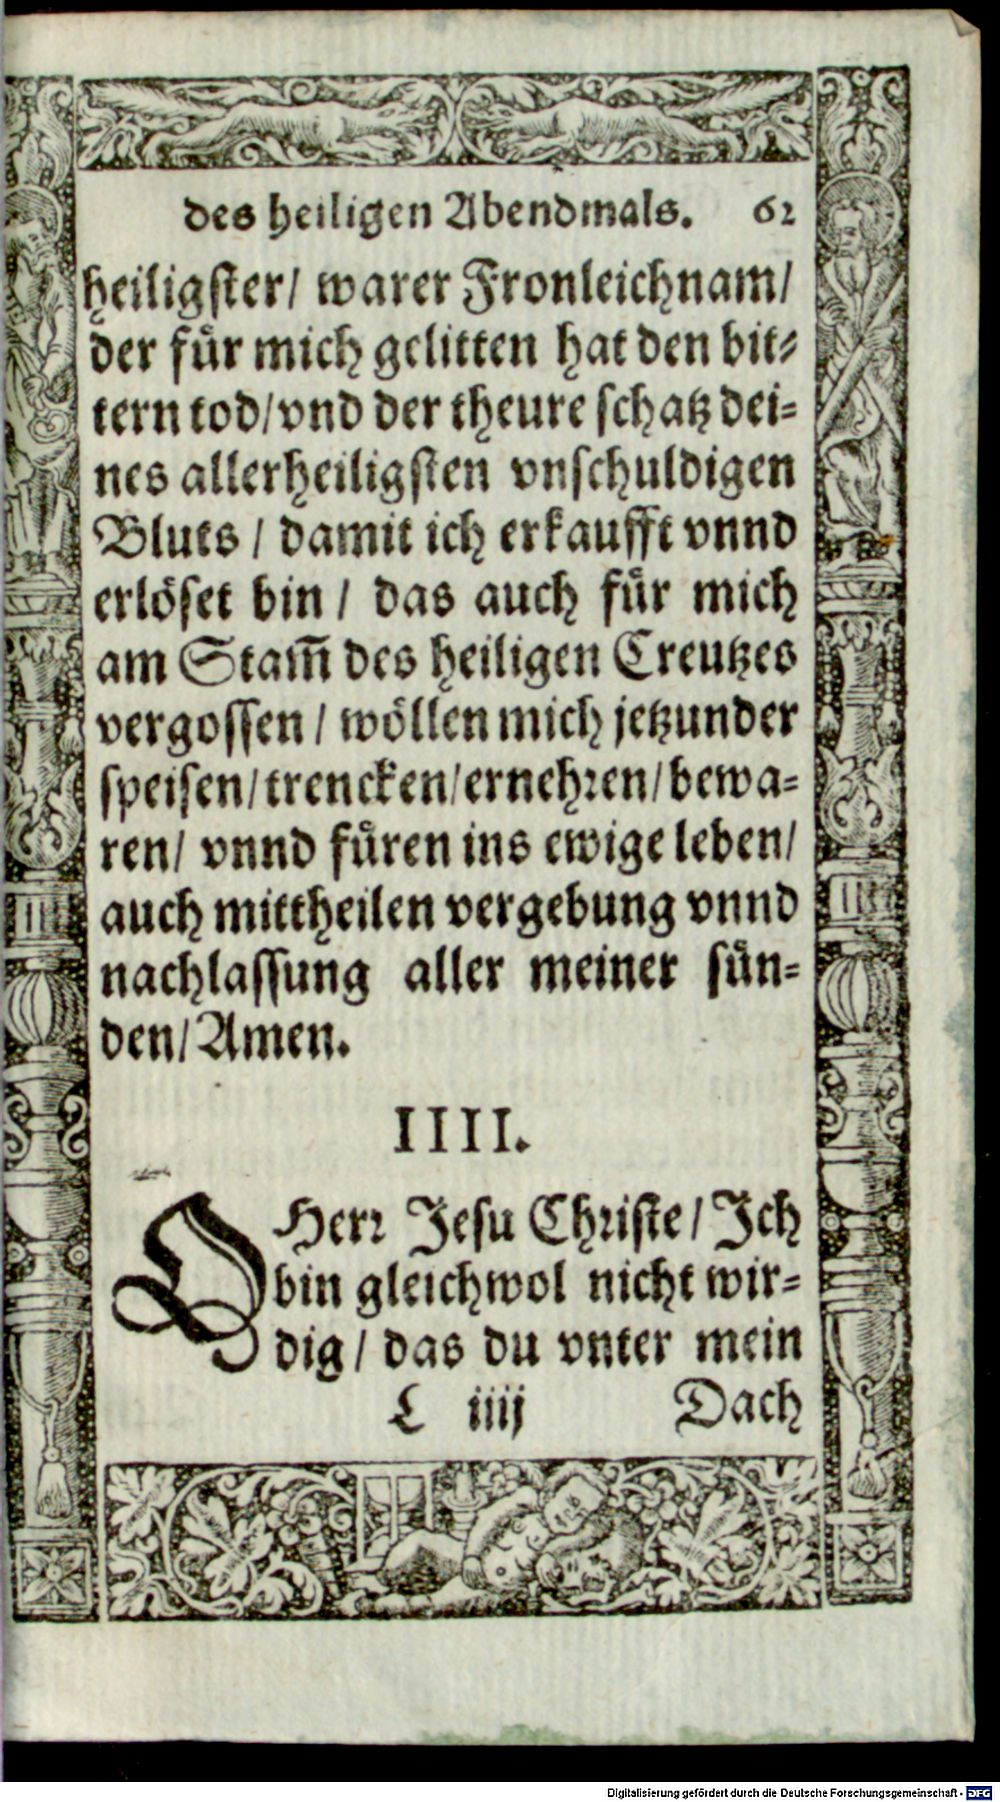 des heiligen Abendmals. 62
heiligster/ warer Fronleichnam/
der fuͤr mich gelitten hat den bit⸗
tern tod/ vnd der theure schatz dei⸗
nes allerheiligsten vnschuldigen
Bluts / damit ich erkaufft vnnd
erlöset bin / das auch fuͤr mich
am Stam̃ des heiligen Creutzes
vergossen / wöllen mich jetzunder
speisen/ trencken/ ernehren/ bewa⸗
ren/ vnnd fuͤren ins ewige leben/
auch mittheilen vergebung vnnd
nachlassung aller meiner sün⸗
den/ Amen.
IIII.
O Herr Jesu Christe / Ich
bin gleichwol nicht wir⸗
dig / das du vnter mein
L iiij Dach
Digitalisierung gefördert durch die Deutsche Forschungsgemeinschaft - DFG